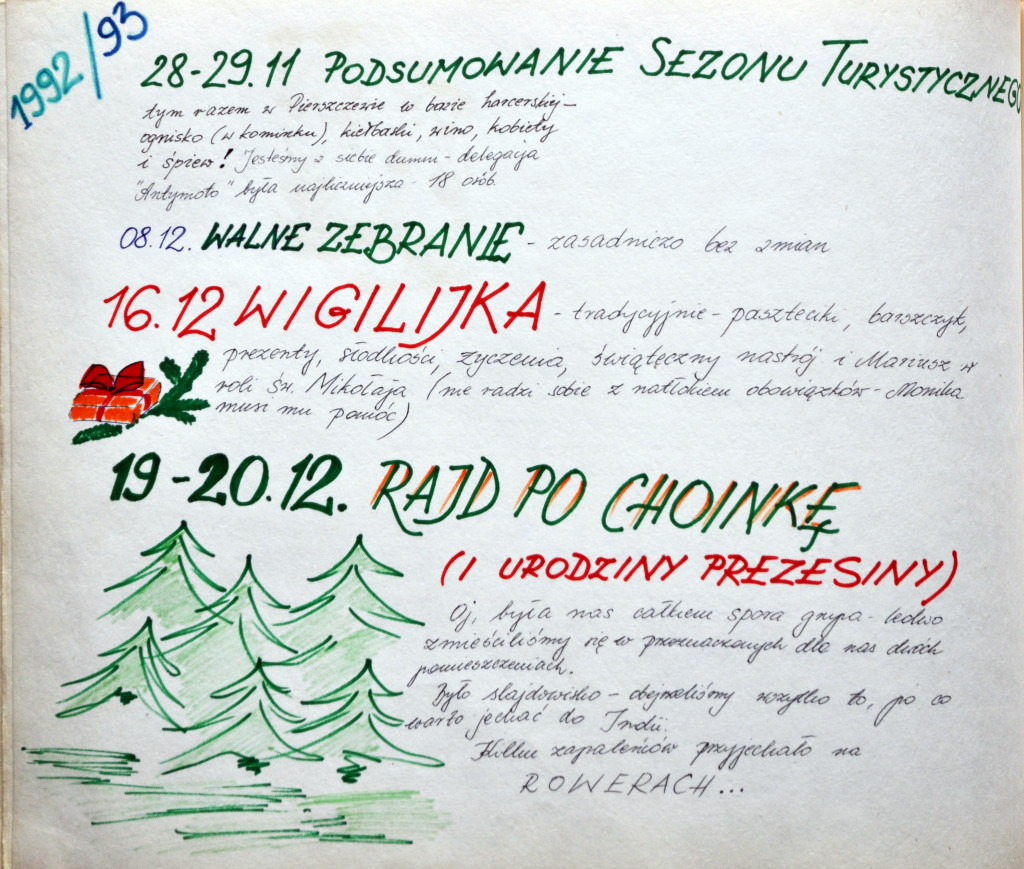 1992/93
28-29.11 PODSUMOWANIE SEZONU TURYSTYCZNEGO
tym razem w Pierszczewie w bazie harcerskiej -
ognisko (w kominku), kiełbaski, wino, kobiety
i śpiew! Jesteśmy z siebie dumni - delegacja
"Antymoto" była najliczniejsza - 18 osób.
08.12. WALNE ZEBRANIE - zasadniczo bez zmian
16.12 WIGILIJKA - tradycyjnie - paszteciki, barszczyk,
prezenty, słodkości, życzenia, świąteczny nastrój i Mariusz w
roli św. Mikołaja (nie radzi sobie z natłokiem obowiązków - Monika
musi mu pomóc)
19-20.12. RAJD PO CHOINKĘ
(I URODZINY PREZESINY)
Oj, była nas całkiem spora grupa - ledwo
zmieściliśmy się w przeznaczonych dla nas dwóch
pomieszczeniach.
Było slajdowisko - obejrzeliśmy wszystko to, po co
warto jechać do Indii.
Kilku zapaleńców przyjechało na
ROWERACH...